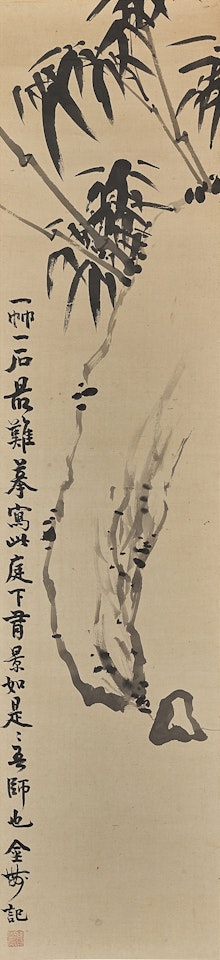 一一石最難摹寫此庭下景如是〻吾師也 金記